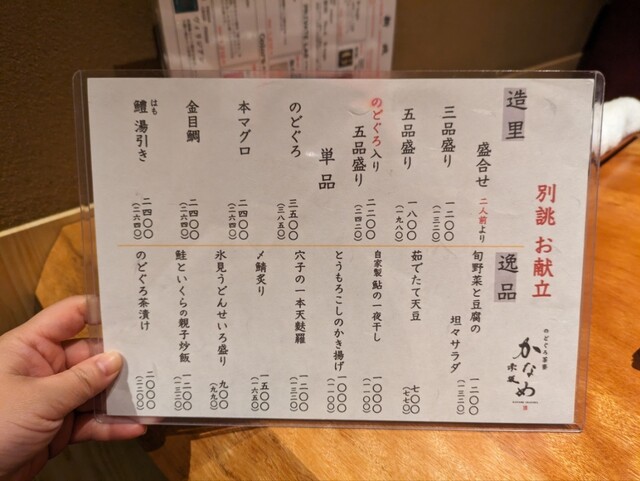 別誂 お献立
のどぐろ茶寮
かなめ
赤坂
造里
盛合せ 二人前より
三品盛り 一二〇〇
(一三二〇)
五品盛り 一八〇〇
(一九八〇)
のどぐろ入り
五品盛り 二二〇〇
(二四二〇)
単品
のどぐろ 三五〇〇
(三八五〇)
本マグロ 二四〇〇
(二六四〇)
金目鯛 二四〇〇
(二六四〇)
はも
鱧 湯引き 二四〇〇
(二六四〇)
逸品
旬野菜と豆腐の
坦々サラダ 一二〇〇
(一三二〇)
茹でたて天豆 七〇〇
(七七〇)
自家製 鮎の一夜干し 一〇〇〇
(一一〇〇)
とうもろこしのかき揚げ 一〇〇〇
(一一〇〇)
穴子の一本天麩羅 一二〇〇
(一三二〇)
〆鯖炙り 一五〇〇
(一六五〇)
氷見うどんせいろ盛り 九〇〇
(九九〇)
鮭といくらの親子炒飯 一二〇〇
(一三二〇)
のどぐろ茶漬け 二〇〇〇
(二二〇〇)